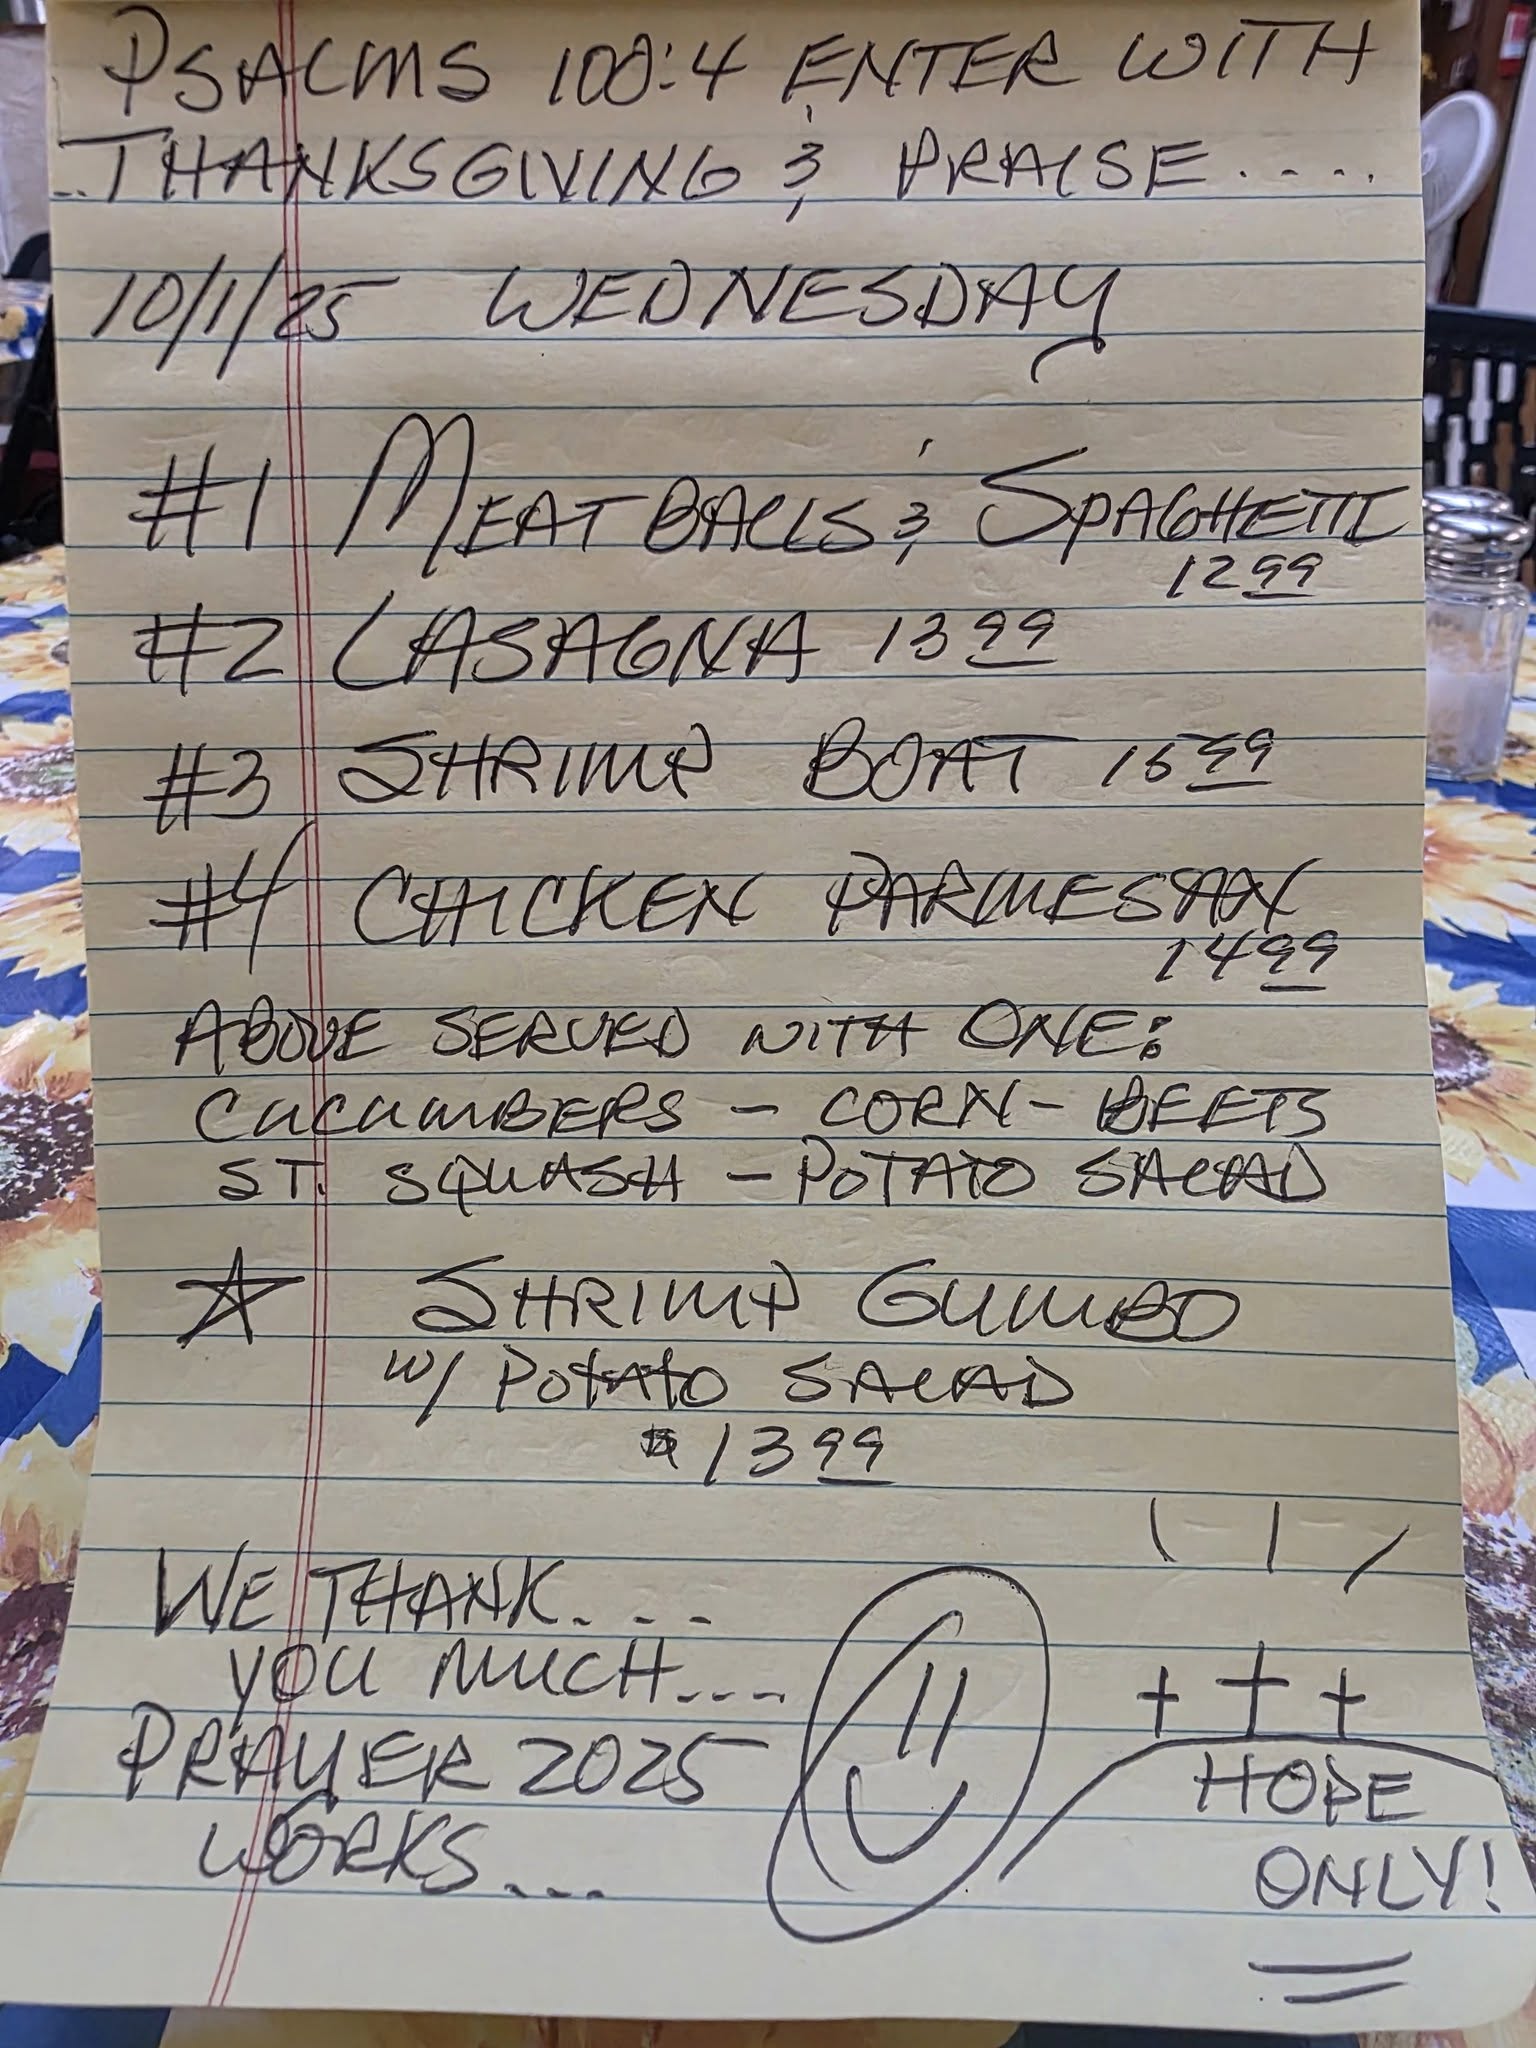 PSALMS 100:4 ENTER WITH
..THANKSGIVING & PRAISE....
10/1/25 WEDNESDAY
#1 MEATBALLS & SPAGHETTI
12 99
#2 LASAGNA 13 99
#3 SHRIMP BOAT 15 99
#4 CHICKEN PARMESAN
14 99
ABOVE SERVED WITH ONE:
CUCUMBERS - CORN - BEETS
ST. SQUASH - POTATO SALAD
☆ SHRIMP GUMBO
W/ POTATO SALAD
$13 99
WE THANK....
YOU MUCH....
PRAYER 2025
WORKS...
HOPE
ONLY!